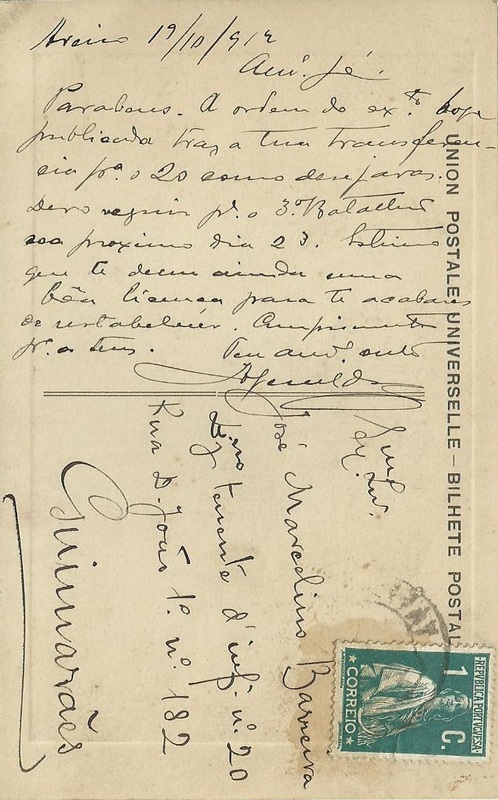 Aveiro 19/10/912
Am.º Jé.
Parabens. A ordem do ex.to hoje
publicada traz a tua transferen-
cia p.ª o 20 como desejavas.
Devo seguir p.ª o 3.º Batalhão
no proximo dia 23. Estimo
que te deem ainda uma
bôa licença para te acabares
de restabelecer. Cumprimentos
p.ª os teus. Teu am.º
UNION POSTALE UNIVERSELLE — BILHETE POSTAL
Ex.mo Snr.
José Marcelino Barreira
D.mo tenente d'inf. n.º 20
Rua D. João 1.º n.º 182
Guimarães
REPUBLICA PORTUGUESA
1 C.
CORREIO